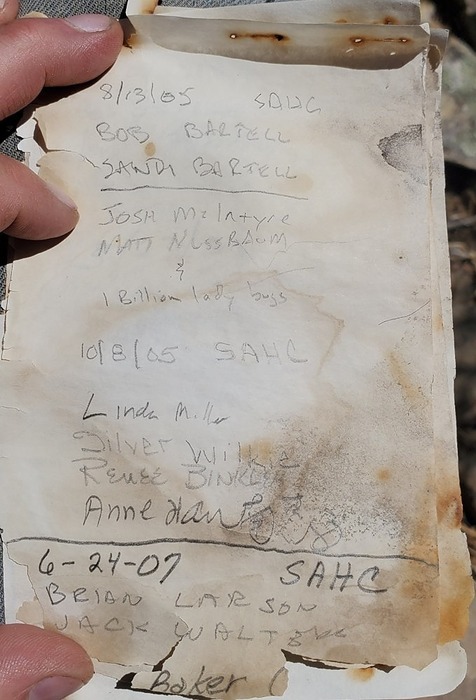 8/13/05 SAHC
BOB BARTELL
SANDI BARTELL
JOSH McIntyre
MATT NUSSBAUM
&
1 Billion lady bugs
10/8/05 SAHC
Linda Miller
Silver Wilkie
RENEE
Anne
6-24-07 SAHC
BRIAN LARSON
JACK
Baker